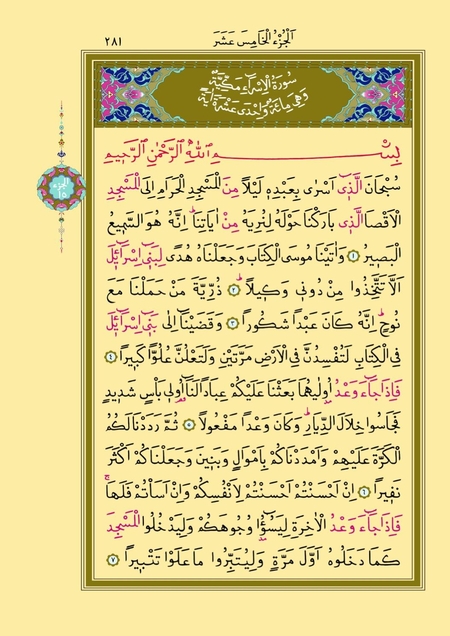 اَلْجُزْءُ الْخَامِسَ عَشَرَ
٢٨١
سُورَةُ الْاِسْرَٓاءِ مَكِّيَّةٌ
وَهِيَ مِائَةٌ وَاِحْدٰى عَشْرَةَ اٰيَةً
الجزء
١٥
بِسْــــــــمِ اللّٰهِ الرَّحْمٰنِ الرَّح۪يمِ
سُبْحَانَ الَّذ۪ٓي اَسْرٰى بِعَبْدِه۪ لَيْلًا مِنَ الْمَسْجِدِ الْحَرَامِ اِلَى الْمَسْجِدِ
الْاَقْصَا الَّذ۪ي بَارَكْنَا حَوْلَهُ لِنُرِيَهُ مِنْ اٰيَاتِنَاۜ اِنَّهُ هُوَ السَّم۪يعُ
الْبَص۪يرُ ﴿١﴾ وَاٰتَيْنَا مُوسَى الْكِتَابَ وَجَعَلْنَاهُ هُدًى لِبَن۪ٓي اِسْرَٓائ۪لَ
اَلَّا تَتَّخِذُوا مِنْ دُون۪ي وَك۪يلًاۜ ﴿٢﴾ ذُرِّيَّةَ مَنْ حَمَلْنَا مَعَ
نُوحٍۜ اِنَّهُ كَانَ عَبْدًا شَكُورًا ﴿٣﴾ وَقَضَيْنَٓا اِلٰى بَن۪ٓي اِسْرَٓائ۪لَ
فِي الْكِتَابِ لَتُفْسِدُنَّ فِي الْاَرْضِ مَرَّتَيْنِ وَلَتَعْلُنَّ عُلُوًّا كَب۪يرًا ﴿٤﴾
فَاِذَا جَٓاءَ وَعْدُ اُو۫لٰيهُمَا بَعَثْنَا عَلَيْكُمْ عِبَادًا لَنَٓا اُو۬ل۪ي بَأْسٍ شَد۪يدٍ
فَجَاسُوا خِلَالَ الدِّيَارِۜ وَكَانَ وَعْدًا مَفْعُولًا ﴿٥﴾ ثُمَّ رَدَدْنَا لَكُمُ
الْكَرَّةَ عَلَيْهِمْ وَاَمْدَدْنَاكُمْ بِاَمْوَالٍ وَبَن۪ينَ وَجَعَلْنَاكُمْ اَكْثَرَ
نَف۪يرًا ﴿٦﴾ اِنْ اَحْسَنْتُمْ اَحْسَنْتُمْ لِاَنْفُسِكُمْ وَاِنْ اَسَأْتُمْ فَلَهَاۚ
فَاِذَا جَٓاءَ وَعْدُ الْاٰخِرَةِ لِيَسُٓؤُ۫ا وُجُوهَكُمْ وَلِيَدْخُلُوا الْمَسْجِدَ
كَمَا دَخَلُوهُ اَوَّلَ مَرَّةٍ وَلِيُتَبِّرُوا مَا عَلَوْا تَتْب۪يرًا ﴿٧﴾